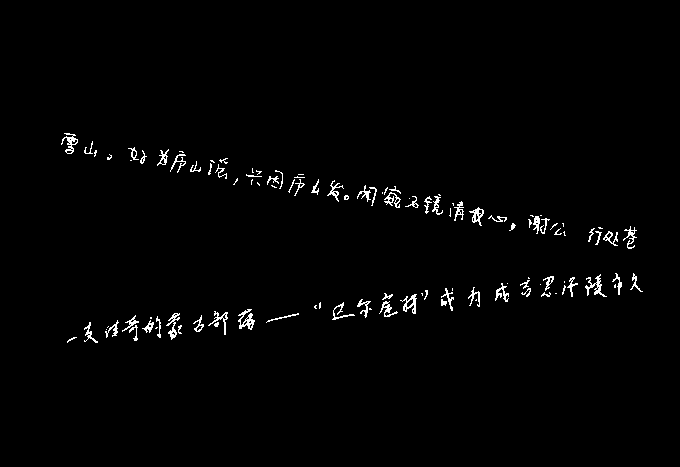 雪山。好为庐山谣,兴因庐山发。闲窥石镜清我心,谢公 行处苍
一支传奇的蒙古部落——“达尔扈特”成为成吉思汗陵市久